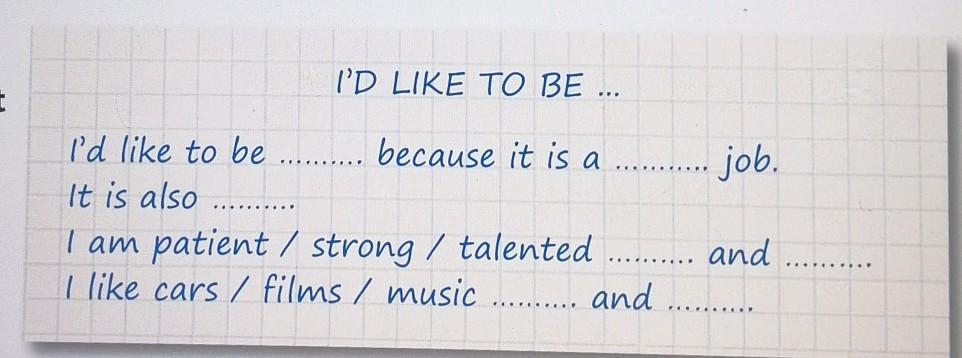 I'D LIKE TO BE ...
I'd like to be .......... because it is a ........... job.
It is also ..........
I am patient / strong / talented .......... and ...........
I like cars / films / music .......... and ..........
t